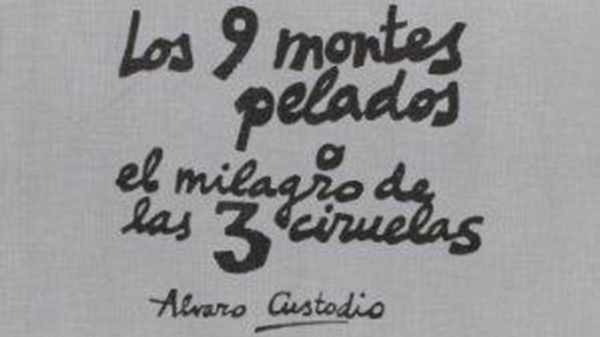 Los 9 montes
pelados
o
el milagro de
las 3 ciruelas
Alvaro Custodio